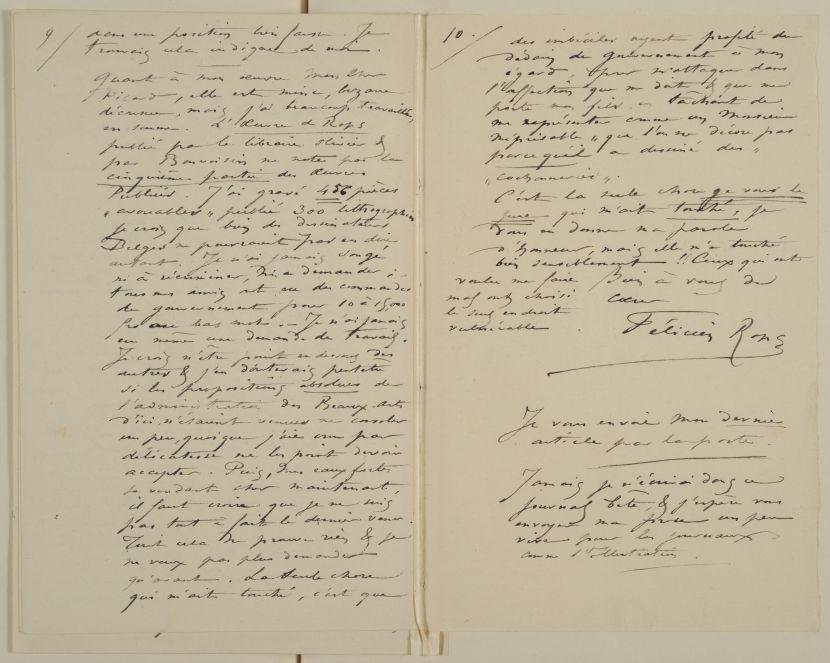 9/
dans une position bien fausse. Je
trouvais cela indigne de moi.
Quant à mon œuvre mon cher
Picard, elle est mince, bizarre
décousue, mais j'ai beaucoup travaillé,
en somme. L'Œuvre de Rops
publié par le libraire Olivier &
par Bonvoisin ne note pas la
cinquième partie des Œuvres
Publiées. J'ai gravé 456 pièces
"avouables" publié 300 lithographies
Je crois que bien des dessinateurs
Belges ne pourraient pas en dire
autant. Je n'ai jamais songé
ni à récriminer, ni à demander :
tous mes amis ont eu des commandes
du gouvernement pour 10 à 15,000
frs au bas mot. – Je n'ai jamais
eu même une demande de travail.
Je crois n'être point en dessous des
autres & j'en douterais peutêtre
si les propositions absolues de
l'administration des Beaux-Arts
d'ici, n'étaient venues me consoler
un peu, quoique j'aie cru par
délicatesse ne les point devoir
accepter. Puis, mes eaux fortes
se vendant cher maintenant,
il faut croire que je ne suis
pas tout à fait le dernier venu.
Tout cela ne prouve rien & je
ne veux pas plus demander
qu'avant. La seule chose
qui m'aits touché, c'est que
10./
des imbéciles ayant profité du
dédain du gouvernement à mon
égard pour m'attaquer dans
l'affection que me doit & que me
porte mon fils en tâchant de
me représenter comme un Monsieur
méprisable "que l'on ne décore pas
parcequ'il a dessiné des"
"cochonneries".
C'est la seule chose je vous le
jure qui m'ait touché, je
vous en donne ma parole
d'Honneur, mais elle m'a touché
bien sensiblement !! Ceux qui ont
voulu me faire
mal ont choisi
le seul endroit
vulnérable.
Bien à vous de
cœur
Félicien Rops
Je vous envoie mon dernier
article par la poste.
Jamais je n'écrirai dans ce
journal bête & j'espère vous
envoyer ma prose un peu
vive pour les journaux
comme l'Illustration.